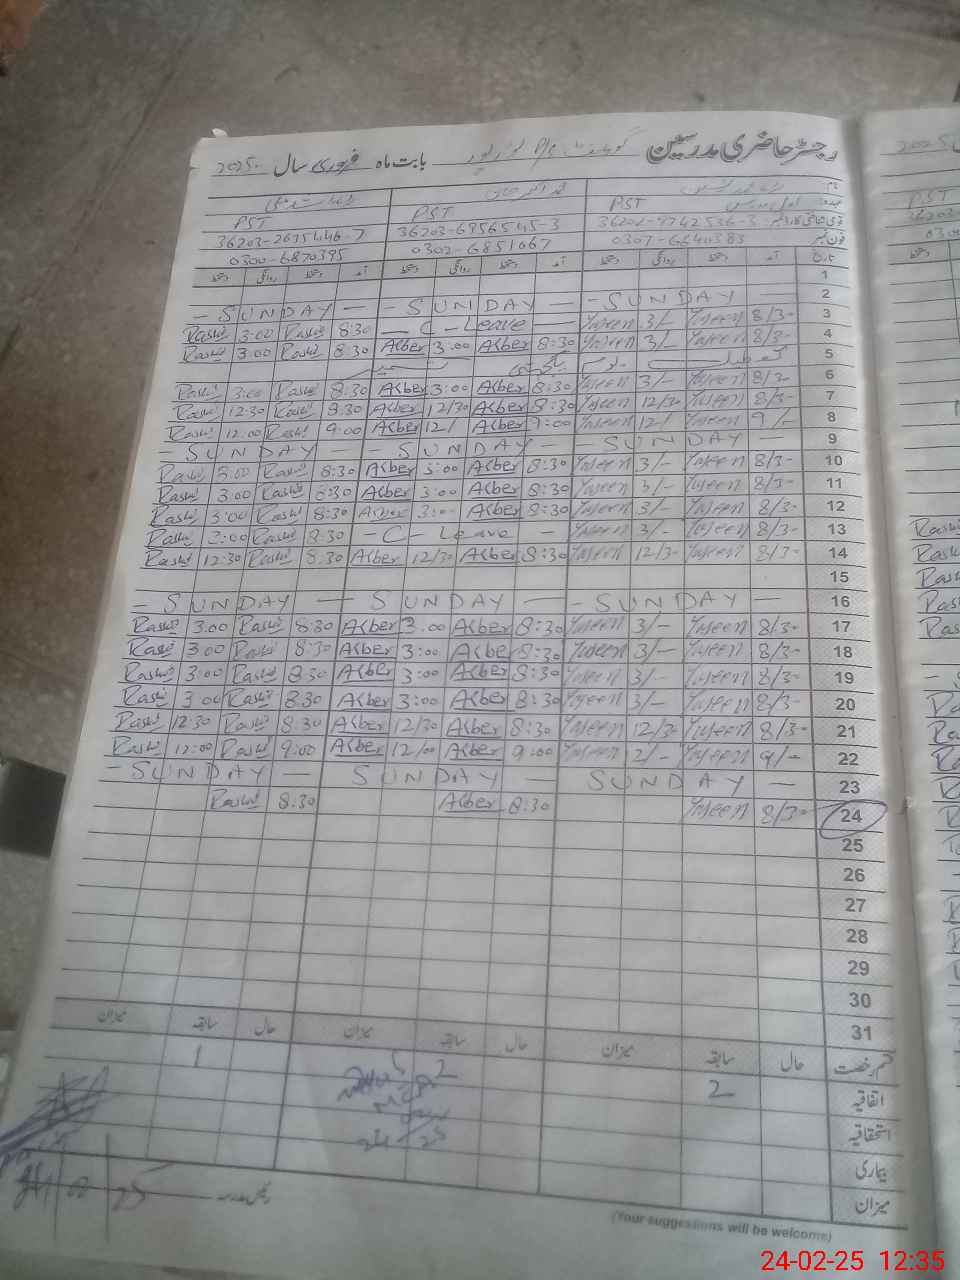 رجسٹر حاضری مدرسین گورنمنٹ P/S نور پور بابت ماہ فروری سال 2025
نام
عہدہ PST PST PST
قومی شناختی کارڈ نمبر 36202-9742536-3 36203-6956545-3 36203-2675446-7
فون نمبر 0307-6640383 0302-6851067 0300-6870395
تاریخ آمد دستخط روانگی دستخط آمد دستخط روانگی دستخط آمد دستخط روانگی دستخط
1
- SUNDAY — - SUNDAY — - SUNDAY — 2
Rashid 3:00 Rashid 8:30 — C-Leave — Yaseen 3/- Yaseen 8/3- 3
Rashid 3:00 Rashid 8:30 Akber 3:00 Akber 8:30 Yaseen 3/- Yaseen 8/3- 4
5
Rashid 3:00 Rashid 8:30 Akber 3:00 Akber 8:30 Yaseen 3/- Yaseen 8/3- 6
Rashid 12:30 Rashid 8:30 Akber 12/30 Akber 8:30 Yaseen 12/3- Yaseen 8/3- 7
Rashid 12:00 Rashid 9:00 Akber 12/ Akber 9:00 Yaseen 12/ Yaseen 9/- 8
- SUNDAY — - SUNDAY — SUNDAY — 9
Rashid 3:00 Rashid 8:30 Akber 3:00 Akber 8:30 Yaseen 3/- Yaseen 8/3- 10
Rashid 3:00 Rashid 8:30 Akber 3:00 Akber 8:30 Yaseen 3/- Yaseen 8/3- 11
Rashid 3:00 Rashid 8:30 Akber 3:00 Akber 8:30 Yaseen 3/- Yaseen 8/3- 12
Rashid 3:00 Rashid 8:30 - C- Leave - Yaseen 3/- Yaseen 8/3- 13
Rashid 12:30 Rashid 8:30 Akber 12/30 Akber 8:30 Yaseen 12/3- Yaseen 8/3- 14
15
- SUNDAY — SUNDAY — - SUNDAY — 16
Rashid 3.00 Rashid 8:30 Akber 3.00 Akber 8:30 Yaseen 3/- Yaseen 8/3- 17
Rashid 3.00 Rashid 8:30 Akber 3:00 Akber 8:30 Yaseen 3/- Yaseen 8/3- 18
Rashid 3:00 Rashid 8:30 Akber 3:00 Akber 8:30 Yaseen 3/- Yaseen 8/3- 19
Rashid 3:00 Rashid 8:30 Akber 3:00 Akber 8:30 Yaseen 3/- Yaseen 8/3- 20
Rashid 12:30 Rashid 8:30 Akber 12/30 Akber 8:30 Yaseen 12/3- Yaseen 8/3- 21
Rashid 12:00 Rashid 9:00 Akber 12/00 Akber 9:00 Yaseen 12/- Yaseen 9/- 22
- SUNDAY — SUNDAY — SUNDAY — 23
Rashid 8:30 Akber 8:30 Yaseen 8/3- 24
25
26
27
28
29
30
31
قسم رخصت حال سابقہ میزان حال سابقہ میزان حال سابقہ میزان
اتفاقیہ 2 2 1
استحقاقیہ
بیماری
میزان
رئیس مدرسہ
(Your suggestions will be welcome)
24-02-25 12:35